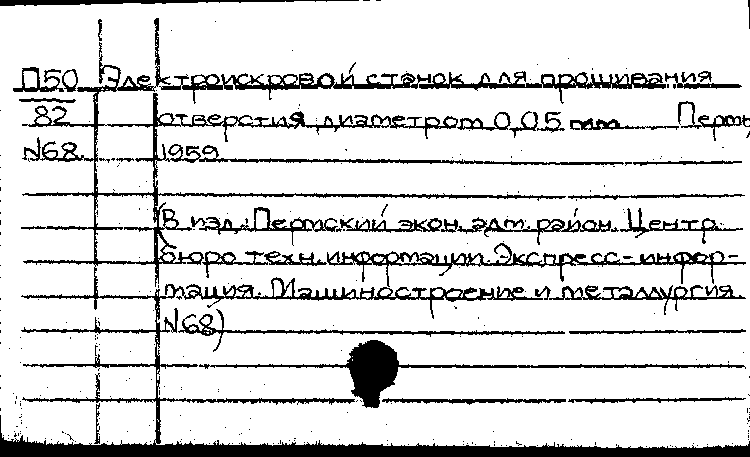 П50 Электроискровой станок для прошивания
82 отверстия диаметром 0,05 mm Пермь
N68 1959
(В изд.: Пермский экон. адм. район. Центр.
бюро техн. информации. Экспресс-инфор-
мация. Машиностроение и металлургия.
N68)